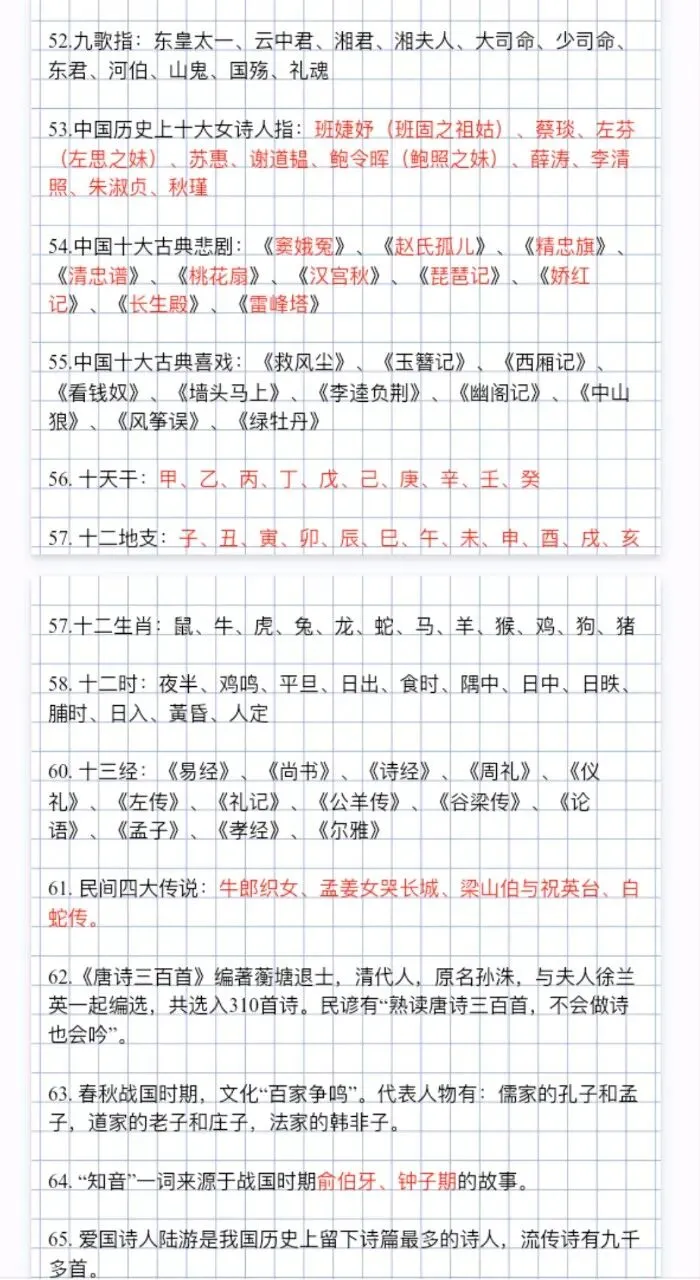 52.九歌指：东皇太一、云中君、湘君、湘夫人、大司命、少司命、
东君、河伯、山鬼、国殇、礼魂
53.中国历史上十大女诗人指：班婕妤（班固之祖姑）、蔡琰、左芬
（左思之妹）、苏惠、谢道韫、鲍令晖（鲍照之妹）、薛涛、李清
照、朱淑贞、秋瑾
54.中国十大古典悲剧：《窦娥冤》、《赵氏孤儿》、《精忠旗》、
《清忠谱》、《桃花扇》、《汉宫秋》、《琵琶记》、《娇红
记》、《长生殿》、《雷峰塔》
55.中国十大古典喜戏：《救风尘》、《玉簪记》、《西厢记》、
《看钱奴》、《墙头马上》、《李逵负荆》、《幽阁记》、《中山
狼》、《风筝误》、《绿牡丹》
56. 十天干：甲、乙、丙、丁、戊、己、庚、辛、壬、癸
57. 十二地支：子、丑、寅、卯、辰、巳、午、未、申、酉、戌、亥
57.十二生肖：鼠、牛、虎、兔、龙、蛇、马、羊、猴、鸡、狗、猪
58. 十二时：夜半、鸡鸣、平旦、日出、食时、隅中、日中、日昳、
脯时、日入、黃昏、人定
60. 十三经：《易经》、《尚书》、《诗经》、《周礼》、《仪
礼》、《左传》、《礼记》、《公羊传》、《谷梁传》、《论
语》、《孟子》、《孝经》、《尔雅》
61. 民间四大传说：牛郎织女、孟姜女哭长城、梁山伯与祝英台、白
蛇传。
62.《唐诗三百首》编著蘅塘退士，清代人，原名孙洙，与夫人徐兰
英一起编选，共选入310首诗。民谚有“熟读唐诗三百首，不会做诗
也会吟”。
63. 春秋战国时期，文化“百家争鸣”。代表人物有：儒家的孔子和孟
子，道家的老子和庄子，法家的韩非子。
64. “知音”一词来源于战国时期俞伯牙、钟子期的故事。
65. 爱国诗人陆游是我国历史上留下诗篇最多的诗人，流传诗有九千
多首。